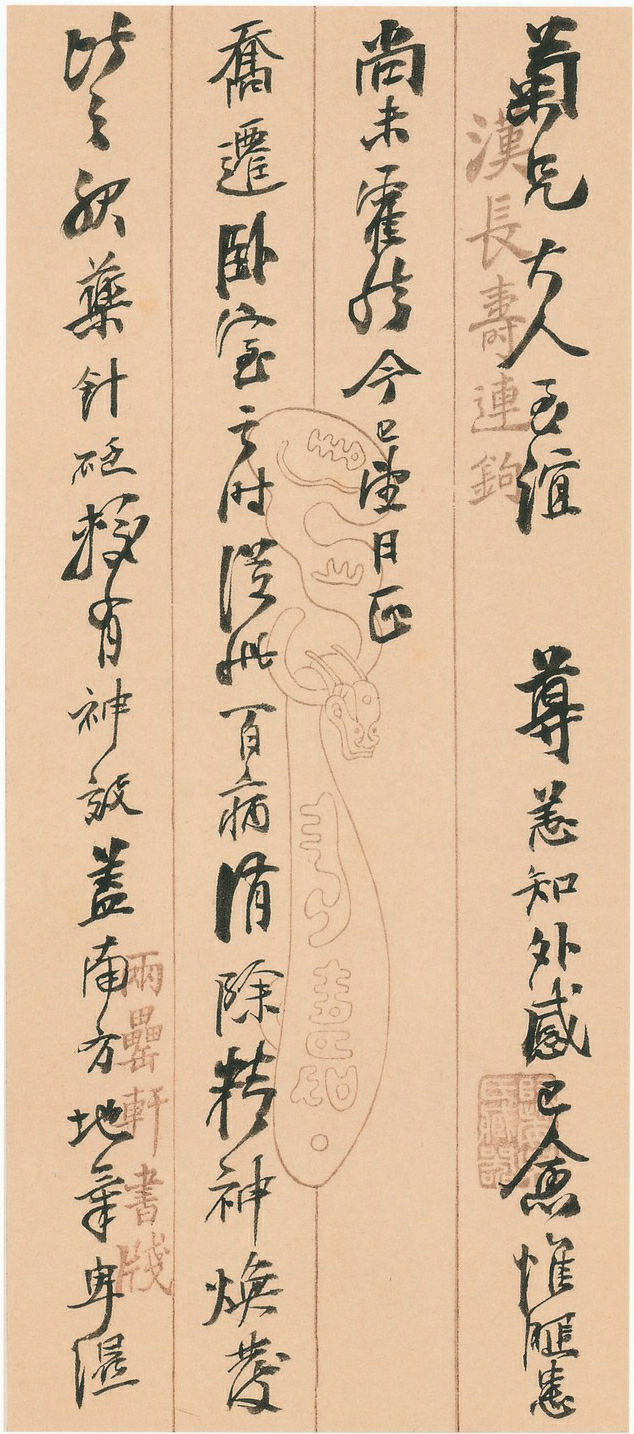 菊兄大人至誼　尊恙知外感已愈惟脚患
尚未霍然今已望日正
喬遷卧室之时從此百病消除精神焕發
此之服藥針砭較有神效蓋南方地氣卑濕
漢長壽連鉤
兩罍軒書牋